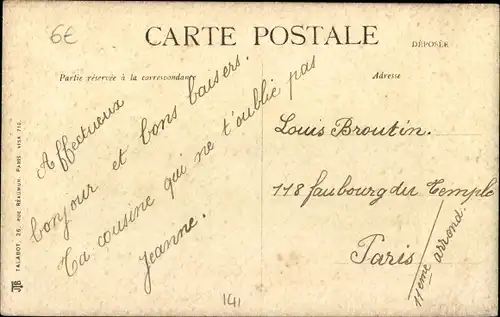 6€
CARTE POSTALE
DÉPOSÉE
Partie réservée à la correspondance
Adresse
Affectueux
bonjour et bons baisers.
Ta cousine qui ne t'oublie pas
Jeanne.
Louis Broutin.
118 faubourg du Temple
Paris
11eme arrond.
TALABOT, 26, RUE RÉAUMUR, PARIS. VISA 712.
141